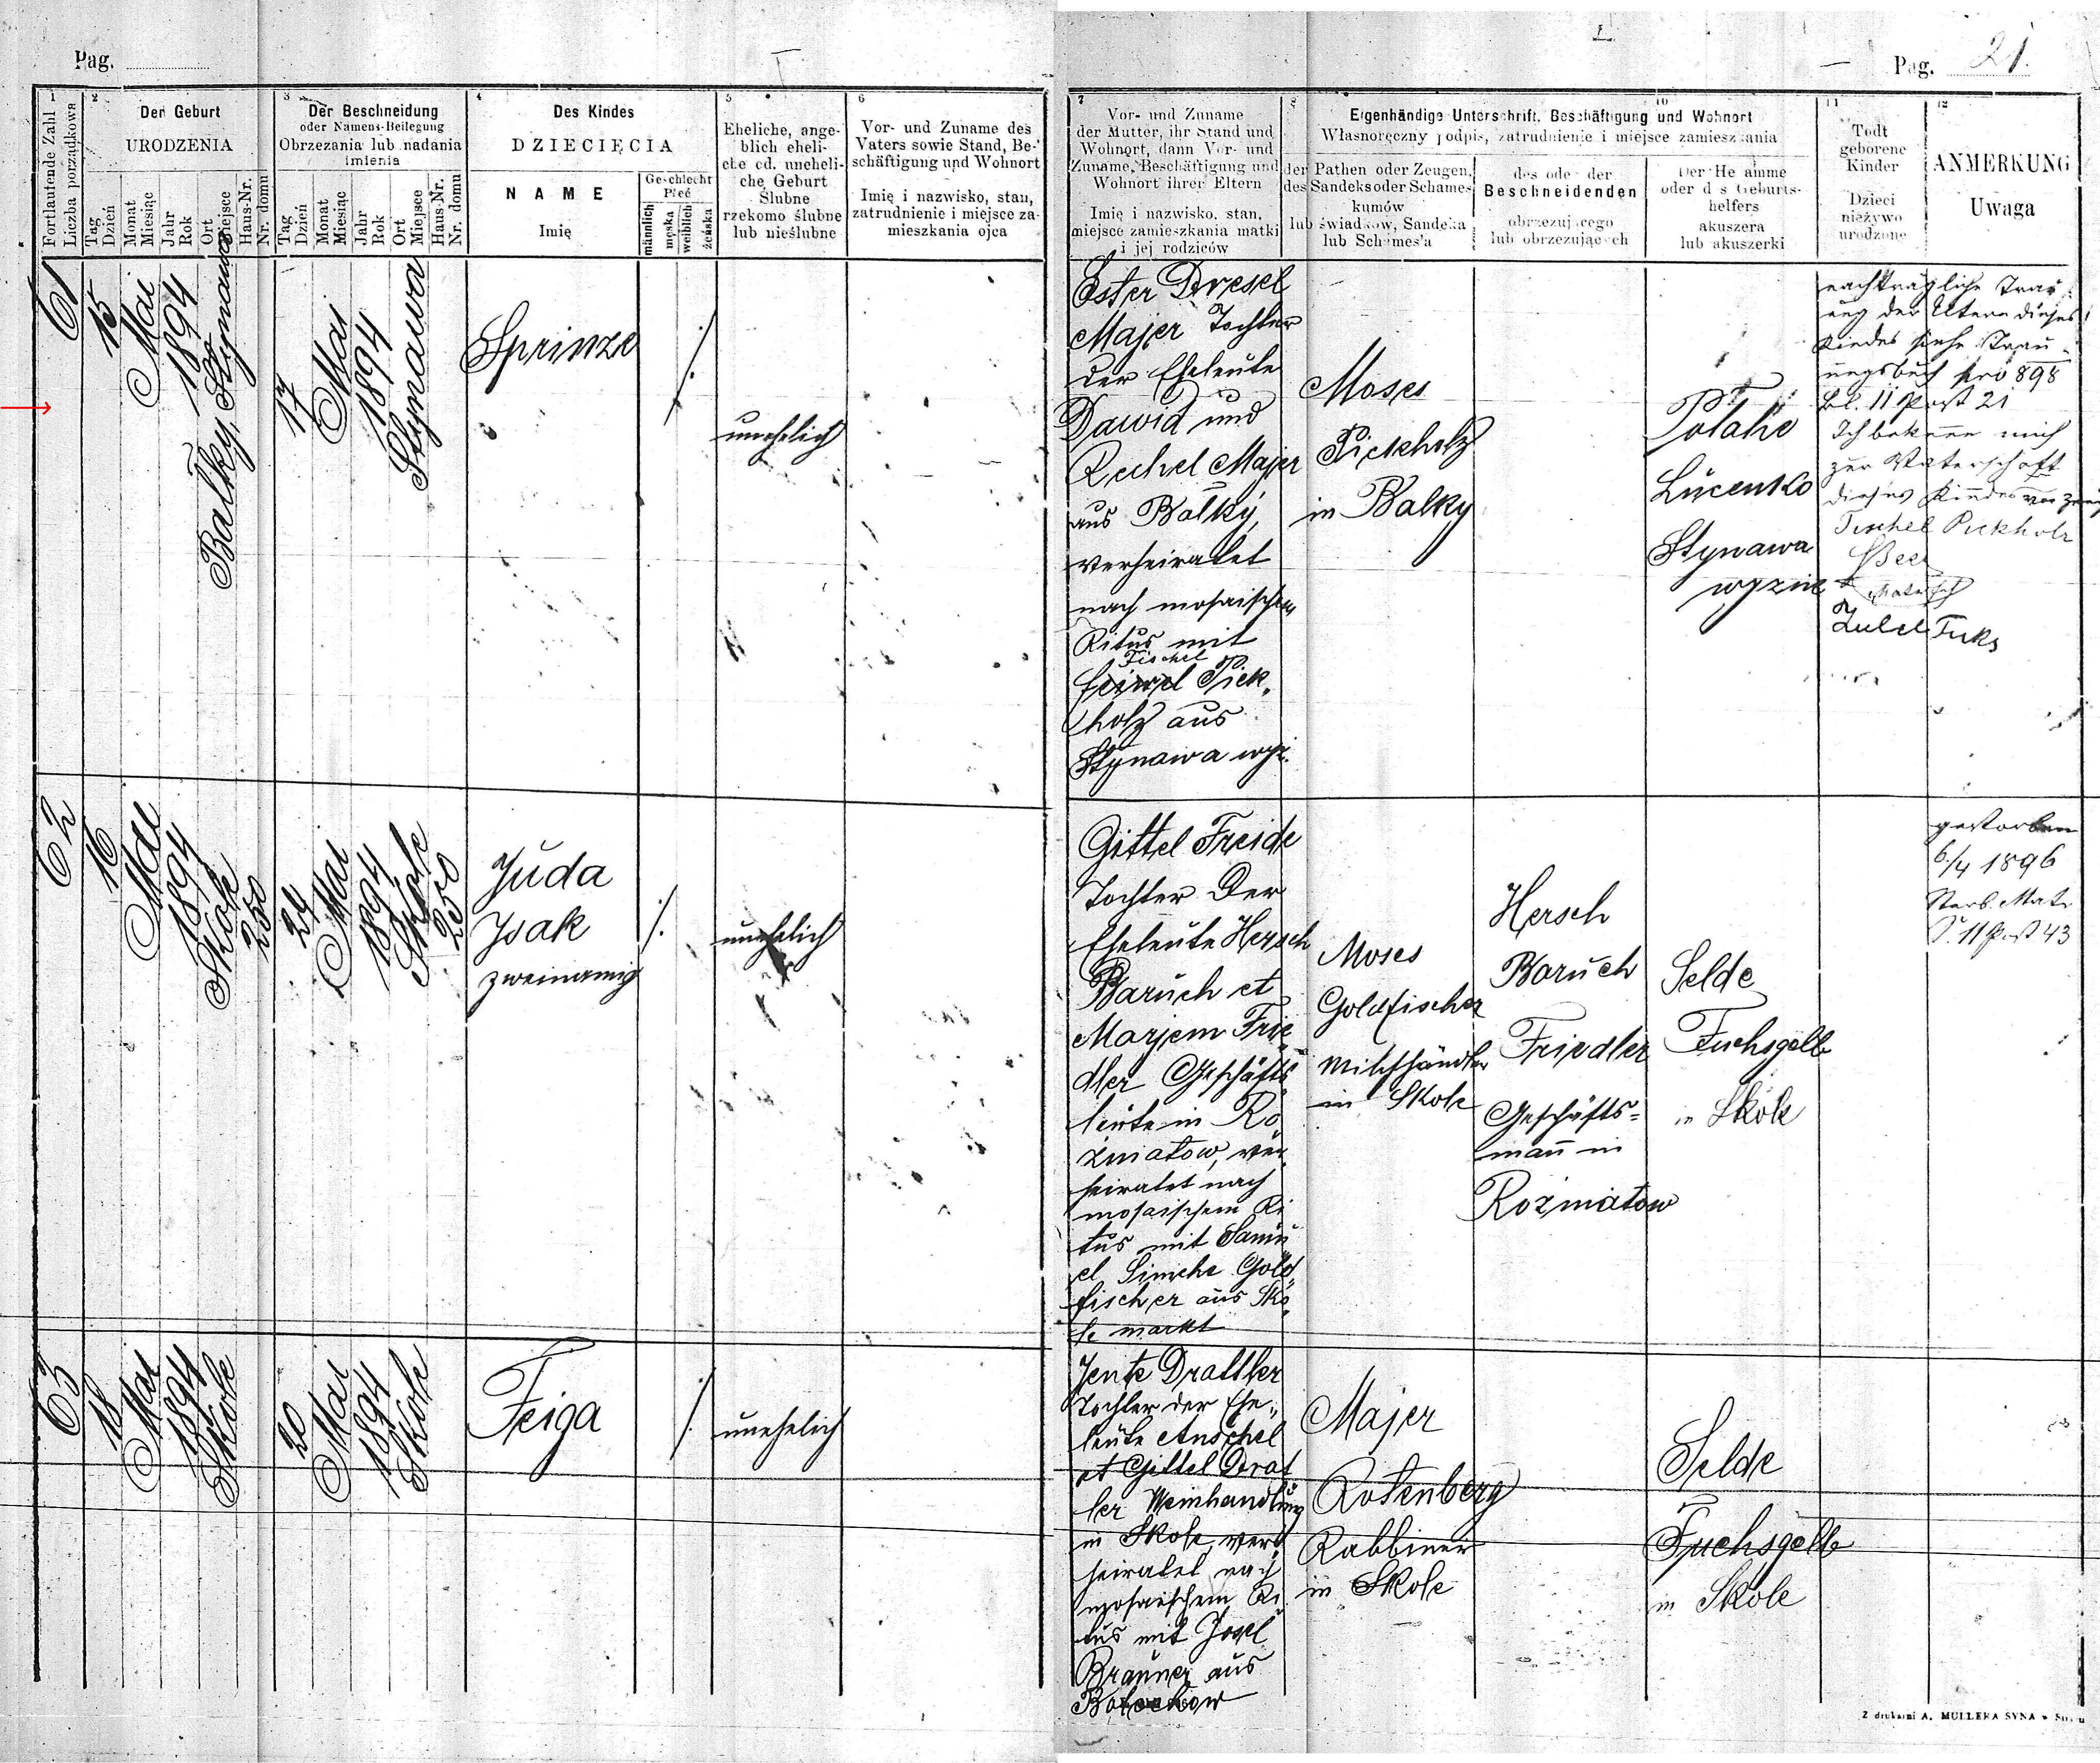 Pag.
I
1
Fortlaufende Zahl
Liczba porządkowa
2
Der Geburt
URODZENIA
Tag
Dzień
Monat
Miesiąc
Jahr
Rok
Ort
Miejsce
Haus-Nr.
Nr. domu
3
Der Beschneidung
oder Namens-Beilegung
Obrzezania lub nadania
imienia
Tag
Dzień
Monat
Miesiąc
Jahr
Rok
Ort
Miejsce
Haus-Nr.
Nr. domu
4
Des Kindes
DZIECIĘCIA
NAME
Imię
Geschlecht
Płeć
männlich
męska
weiblich
żeńska
5
Eheliche, ange-
blich eheli-
che od. uneheli-
che Geburt
Ślubne
rzekomo ślubne
lub nieślubne
6
Vor- und Zuname des
Vaters sowie Stand, Be-
schäftigung und Wohnort
Imię i nazwisko, stan,
zatrudnienie i miejsce za-
mieszkania ojca
61
15
Mai
1894
Balky, Stynawa
17
Mai
1894
Stynawa
Sprinze
unehelich
62
16
Mai
1894
Skole
250
24
Mai
1894
Skole
250
Juda
Isak
zweinamig
unehelich
63
18
Mai
1894
Skole
20
Mai
1894
Skole
Feiga
unehelich
Pag. 21.
7
Vor- und Zuname
der Mutter, ihr Stand und
Wohnort, dann Vor- und
Zuname, Beschäftigung und
Wohnort ihrer Eltern
Imię i nazwisko, stan,
miejsce zamieszkania matki
i jej rodziców
8
Eigenhändige Unterschrift, Beschäftigung und Wohnort
Własnoręczny podpis, zatrudnienie i miejsce zamieszkania
der Pathen oder Zeugen,
des Sandeks oder Schames
kumów
lub świadków, Sandeka
lub Schames'a
des oder der
Beschneidenden
obrzezującego
lub obrzezujących
10
Der Hebamme
oder des Geburts-
helfers
akuszera
lub akuszerki
11
Todt
geborene
Kinder
Dzieci
nieżywo
urodzone
12
ANMERKUNG
Uwaga
Ester Dresel
Majer Tochter
der Eheleute
Dawid und
Ruchel Majer
aus Balky,
verheiratet
nach mosaischem
Ritus mit
Fischel
feiwel Pick-
holz aus
Stynawa wyz.
Moses
Pickholz
in Balky
Lucenko
Stynawa
wyzna
nachträgliche Trau-
ung der Eltern dieses
Kindes siehe Trau-
ungsbuch pro 898
Bl. 11 Post 21
Ich bekenne mich
zur Vaterschaft
dieses Kindes
Fischel Pickholz
Fuks
Gittel Freide
Tochter Der
Eheleute Hersch
Baruch et
Marjem Frie-
dler Geschäfts-
leute in Ro-
żniatow, ver-
heiratet nach
mosaischem Ri-
tus mit Samu-
el Simche Gold-
fischer aus Sko-
le markt
Moses
Goldfischer
Milchhändler
in Skole
Hersch
Baruch
Friedler
Geschäfts=
mann in
Rożniatow
Selde
Fuchsgelb
in Skole
gestorben
6/4 1896
Sterb. Matr
S. 11 Post 43
Jente Drattler
Tochter der Ehe-
leute Anschel
et Gittel Drat-
ler Weinhandlung
in Skole ver-
heiratet nach
mosaischem Ri-
tus mit Josel
Brauner aus
Bolechow
Majer
Rotenberg
Rabbiner
in Skole
Selde
Fuchsgelb
in Skole
Z drukarni A. MÜLLERA SYNA w